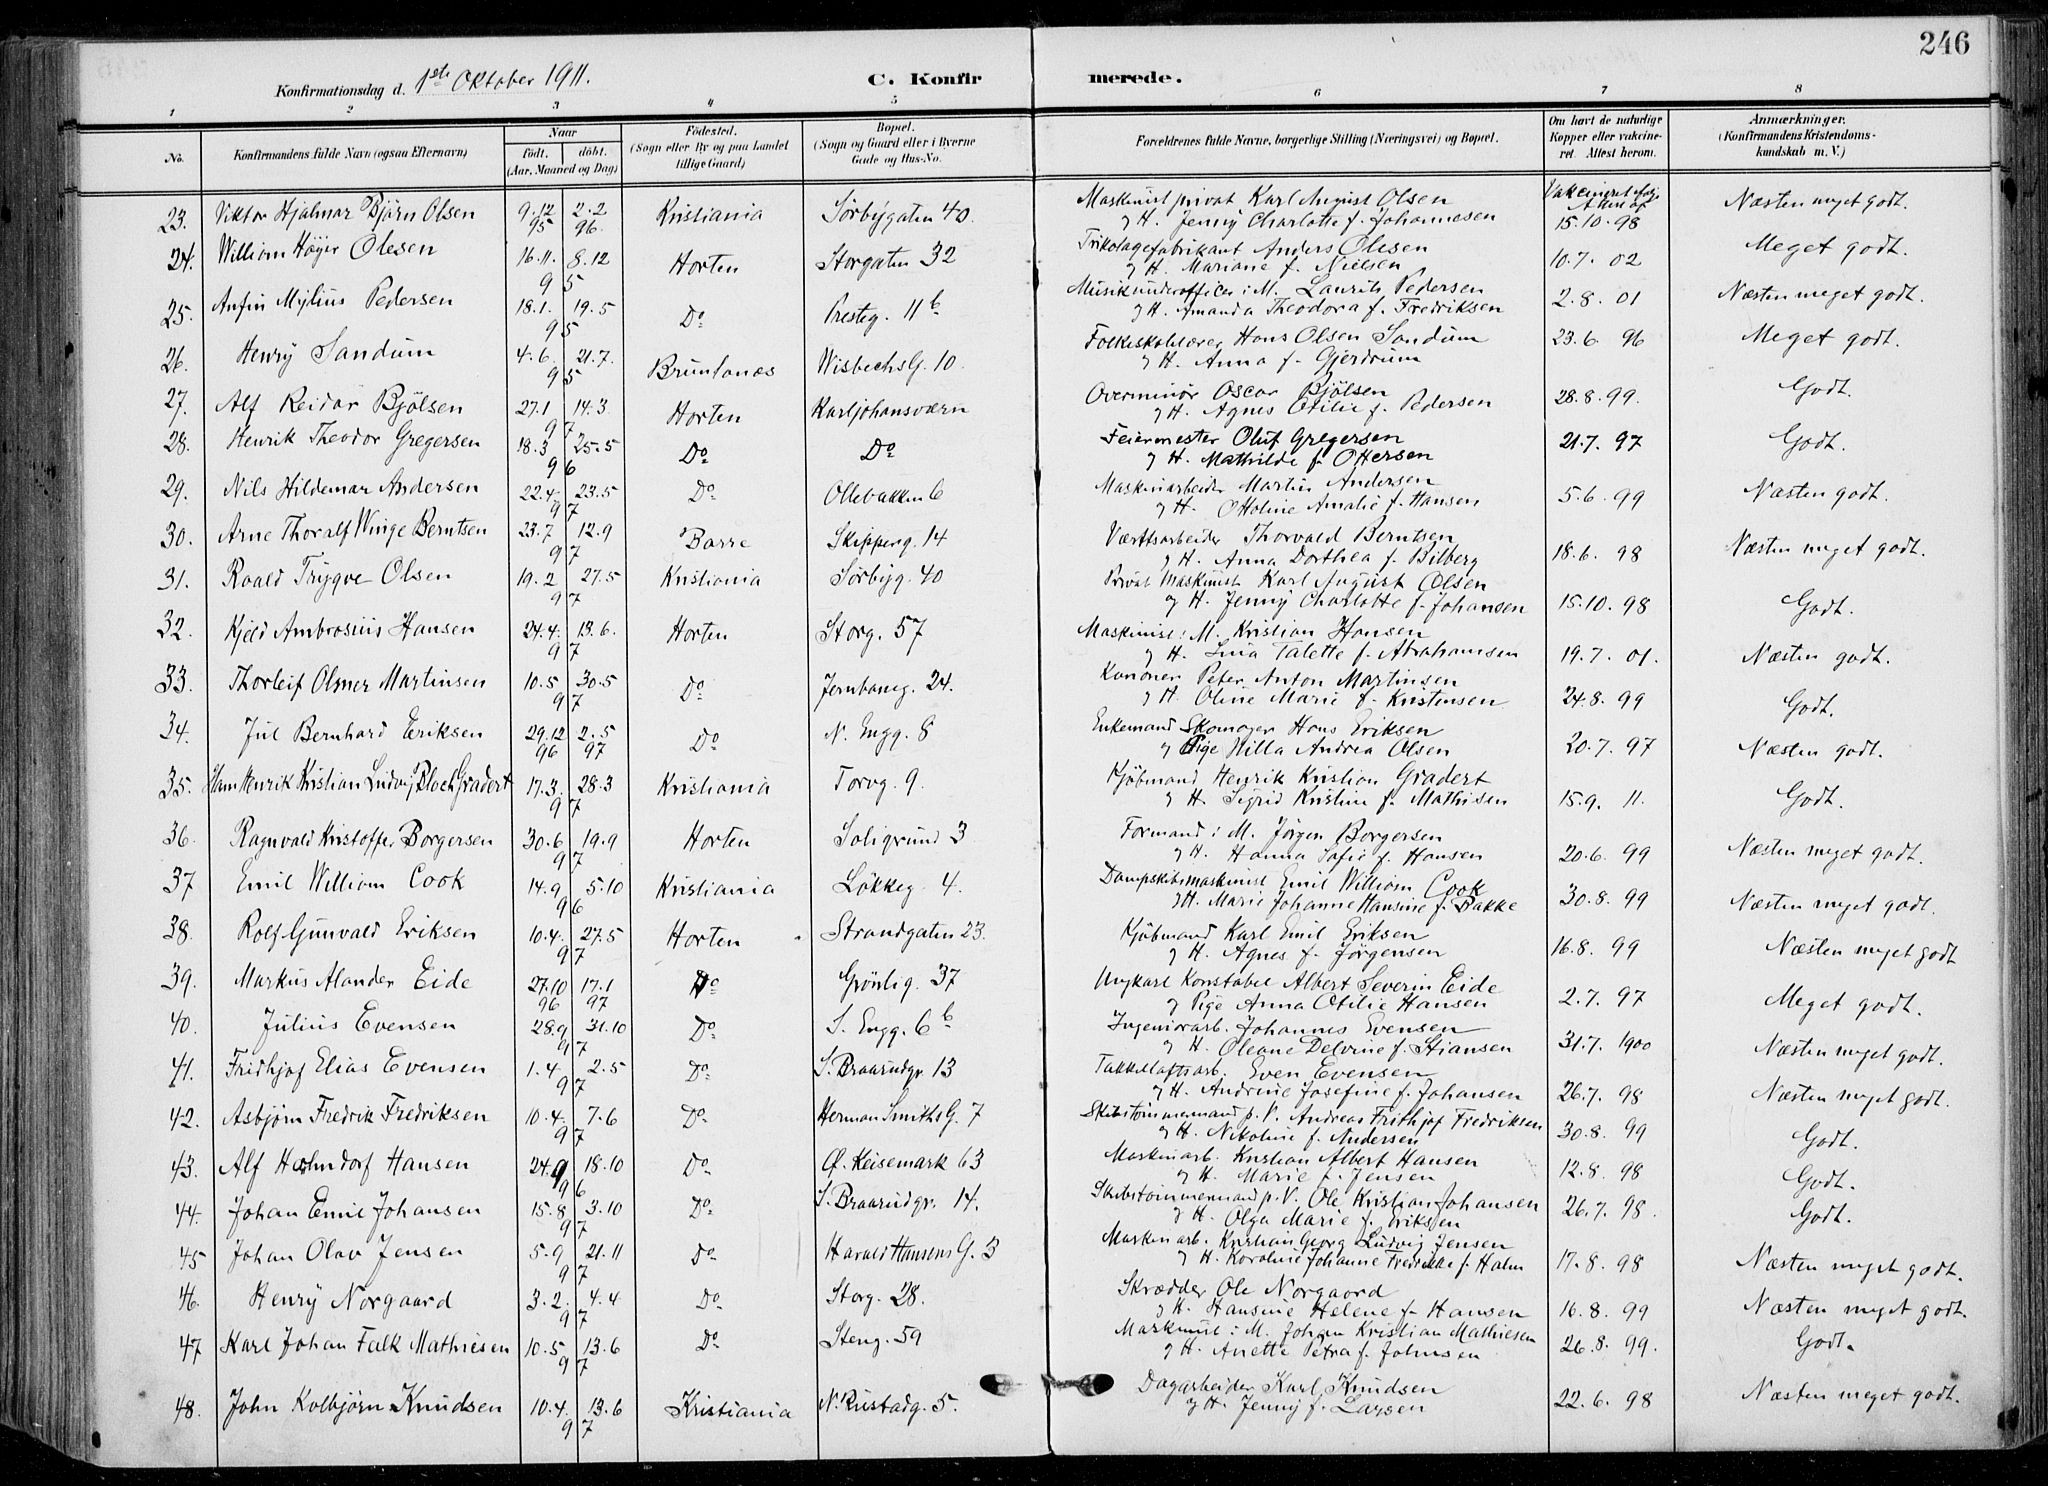 246
Konfirmationsdag d. 1ste Oktober 1911. C. Konfirmerede.
1 2 3 4 5 6 7 8
No. Konfirmandens fulde Navn (ogsaa Efternavn) Naar födt. döbt. (Aar, Maaned og Dag) Födested. (Sogn eller By og paa Landet tillige Gaard) Bopæl. (Sogn og Gaard eller i Byerne Gade og Hus-No. Forældrenes fulde Navne, borgerlige Stilling (Næringsvei) og Bopæl. Om havt de naturlige Kopper eller vakcineret. Attest herom. Anmærkninger. (Konfirmandens Kristendomskundskab m. V.)
23. Viktor Hjalmar Björn Olsen 9.12 95 2.2 96. Kristiania Sörbygaten 40. Maskinist privat Karl August Olsen Vakcineret
og H. Jenny Charlotte f. Johannesen 15.10.98 Næsten meget godt.
24. William Höyer Olesen 16.11. 8.12 95 Horten Storgaten 32 Trikotagefabrikant Anders Olesen
og H. Mariane f. Nielsen 10.7.02 Meget godt.
25. Anfin Mylius Pedersen 18.1. 19.5 95 Do Presteg. 11b Musikunderofficer i M. Laurits Pedersen
og H. Amanda Theodora f. Fredriksen 2.8.01 Næsten meget godt.
26. Henry Sandum 4.6. 21.7. 95 Bruntanæs Wisbechs G. 10. Folkeskolelærer Hans Olsen Sandum
og H. Anna f. Gjerdrum 23.6.96 Meget godt.
27. Alf Reidar Bjölsen 27.1 14.3. 97 Horten Karljohansværn Overminör Oscar Bjölsen
og H. Agnes Otilie f. Pedersen 28.8.99. Godt.
28. Henrik Theodor Gregersen 18.3 25.5 96 Do Do Feiermester Oluf Gregersen
og H. Mathilde f. Ottersen 21.7.97 Godt.
29. Nils Hildemar Andersen 22.4. 23.5 97 Do Ollebakken 6 Maskinarbeider Martin Andersen
og H. Ottoline Amalie f. Hansen 5.6.99 Næsten godt.
30. Arne Thoralf Winge Berntsen 23.7 12.9 97 Borre Skipperg. 14 Værftsarbeider Thorvald Berntsen
og H. Anna Dorthea f. Bilberg 18.6.98 Næsten meget godt.
31. Roald Trygve Olsen 19.2 27.5 97 Kristiania Sörbyg. 40 Privat Maskinist Karl August Olsen
og H. Jenny Charlotte f. Johansen 15.10.98 Godt.
32. Kjeld Ambrosius Hansen 24.4. 13.6. 97 Horten Storg. 57 Maskinist i M. Kristian Hansen
og H. Lina Talette f. Abrahamsen 19.7.01. Næsten godt.
33. Thorleif Olmer Martinsen 10.5 30.5 97 Do Jernbaneg. 24. Kanoner Peter Anton Martinsen
og H. Oline Marie f. Kristensen 24.8.99 Godt.
34. Jul Bernhard Eriksen 29.12 96 2.5 97 Do N. Engg. 8 Enkemand Skomager Hans Eriksen
og Pige Hilla Andrea Olsen 20.7.97 Næsten godt.
35. Hans Henrik Kristian Ludvig Bloch Gradert 17.3. 28.3 97 Kristiania Torvg. 9. Kjöbmand Henrik Kristian Gradert
og H. Sigrid Kristine f. Mathisen 15.9.11. Godt.
36. Ragnvald Kristoffer Borgersen 30.6 19.9 97 Horten Soligrund 3 Formand i M. Jörgen Borgersen
og H. Hanna Sofie f. Hansen 20.6.99 Næsten meget godt.
37 Emil William Cook 14.9 5.10 96 Kristiania Lökkeg. 4. Dampskibsmaskinist Emil William Cook
og H. Marie Johanne Hansine f. Bakke 30.8.99 Næsten meget godt.
38. Rolf Gunvald Eriksen 10.4. 27.5 97 Horten Strandgaten 23. Kjöbmand Karl Emil Eriksen
og H. Agnes f. Jörgensen 16.8.99 Næsten meget godt
39. Markus Alander Eide 27.10 96 17.1 97 Do Grönlig. 37 Ungkarl Konstabel Albert Severin Eide
og Pige Anna Otilie Hansen 2.7.97 Meget godt.
40. Julius Evensen 28.9 31.10 97 Do S. Engg. 6b Ingeniörarb. Johannes Evensen
og H. Oleane Delvine f. Stiansen 31.7.1900 Næsten meget godt.
41. Fridhjof Elias Evensen 1.4. 2.5 97 Do S. Braarudgr. 13 Takkelloftsarb. Even Evensen
og H. Andrine Josefine f. Johansen 26.7.98 Næsten meget godt.
42. Asbjörn Fredrik Fredriksen 10.4. 7.6 97 Do Herman Smiths G. 7 Skibstömmermand p. V. Andreas Frithjof Fredriksen
og H. Nikoline f. Andersen 30.8.99 Godt.
43. Alf Holmdorf Hansen 24.9 18.10 96 Do Ö. Keisemark 63 Maskinarb. Kristian Albert Hansen
og H. Marie f. Jensen 12.8.98 Godt.
44. Johan Emil Johansen 15.8 3.10 97 Do S. Braarudgr. 14. Skibstömmermand p. V. Ole Kristian Johansen
og H. Olga Marie f. Eriksen 26.7.98. Godt.
45 Johan Olav Jensen 5.9 21.11 97 Do Harald Hansens G. 3 Maskinarb. Kristian Georg Ludvig Jensen
og H. Karoline Johanne Fredrikke f. Holm 17.8.98 Næsten meget godt.
46. Henry Norgaard 3.2. 4.4 97 Do Storg. 28. Skrædder Ole Norgaard
og H. Hansine Helene f. Hansen 16.8.99 Næsten meget godt.
47 Karl Johan Falk Mathiesen 10.5 13.6 97 Do Steng. 59 Maskinist i M. Johan Kristian Mathiesen
og H. Anette Petra f. Johnsen 26.8.99. Godt.
48. John Kolbjörn Knudsen 10.4. 13.6 97 Kristiania N. Rustadg. 5. Dagarbeider Karl Knudsen
og H. Jenny f. Larsen 22.6.98 Næsten meget godt.